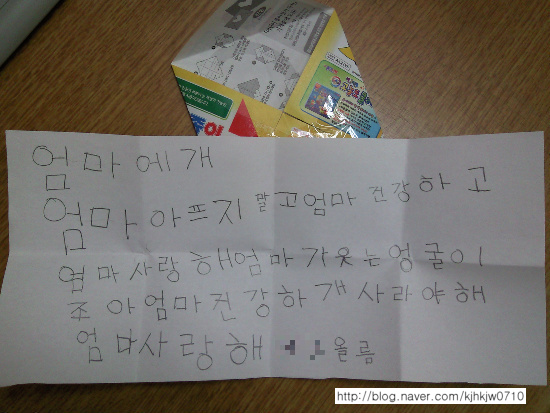 엄마에개
엄마 아프지 말고 엄마 건강하고
엄마 사랑해 엄마가 웃는 엉굴이
조아 엄마 건강하개 사라야해
엄마사랑해 올름
http://blog.naver.com/kjhkjw0710